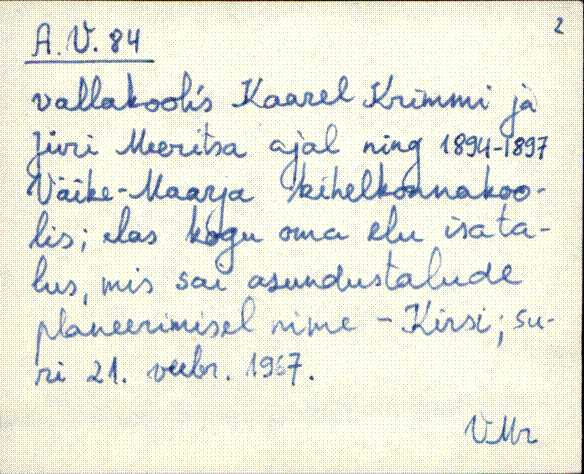 2
A.V. 84
vallakoolis Kaarel Krimmi ja
Jüri Meeritsa ajal ning 1894-1897
Väike-Maarja kihelkonnakoo-
lis; elas kogu oma elu isata-
lus, mis sai asundustalude
planeerimisel nime - Kirsi; su-
ri 21. veebr. 1967.
VMr